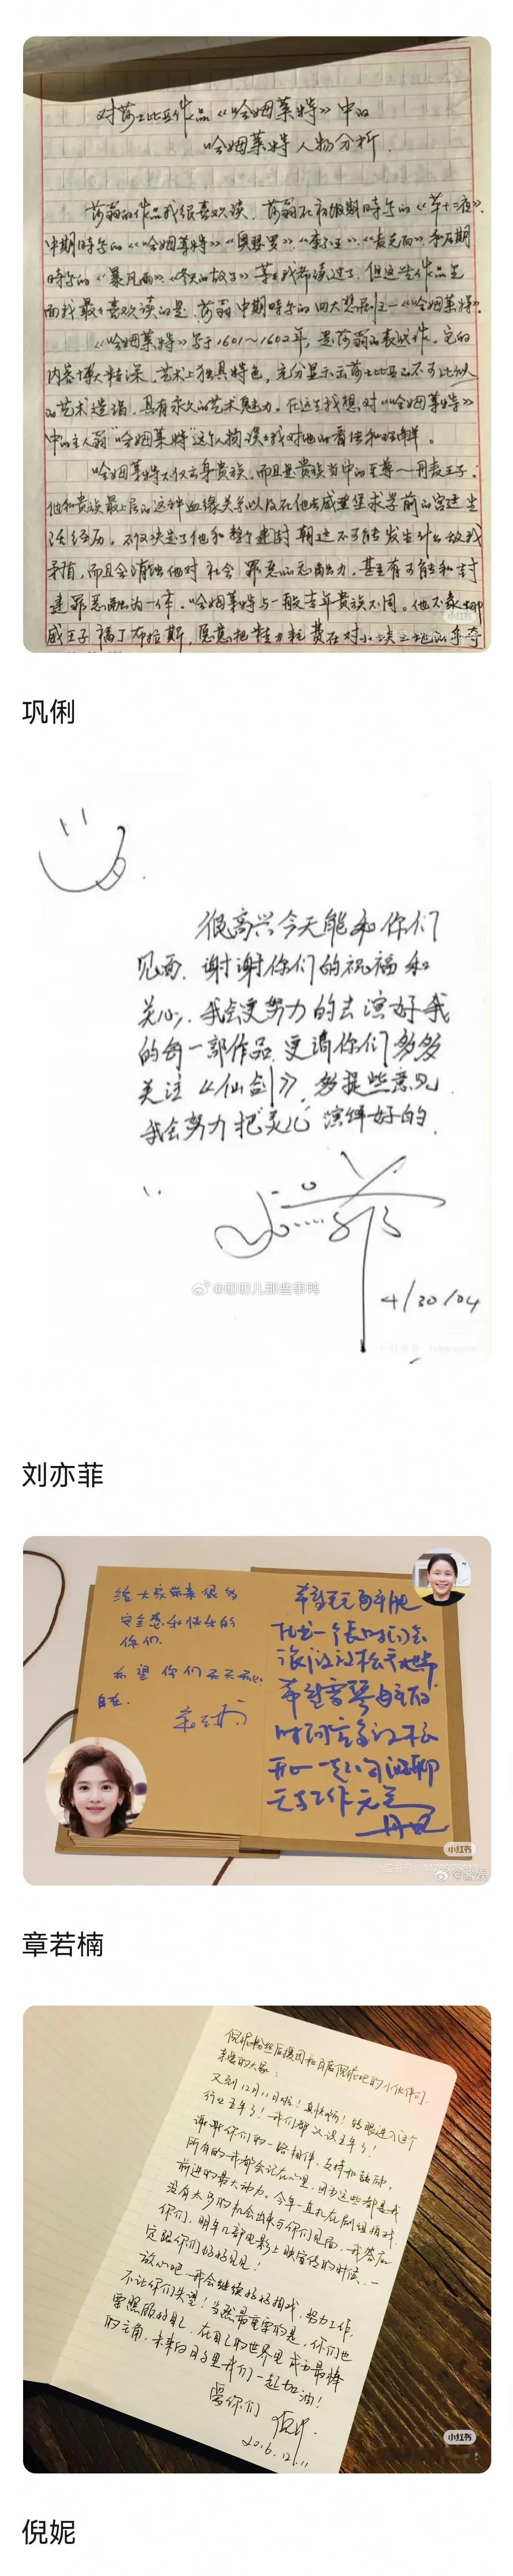 对莎士比亚作品《哈姆莱特》中的
哈姆莱特人物分析
莎翁的作品我很喜欢读.莎翁在初期时写的《第十二夜》,
中期时写的《哈姆莱特》《奥瑟罗》《李尔王》《麦克白》和后期
时写的《暴风雨》《冬天的故事》等等我都读过了.但这些作品里
面我最最喜欢读的是,莎翁中期时写的四大悲剧之一《哈姆莱特》.
《哈姆莱特》写于1601～1602年,是莎翁的表代作.它的
内容博大精深,艺术上独具特色,充分显示出莎士比亚的不可比似
的艺术造诣,具有永久的艺术魅力.在这里我想对《哈姆莱特》
中的主人翁"哈姆莱特"这个人物谈谈我对他的看法和理解。
哈姆莱特不仅出身贵族,而且是贵族当中的至尊—丹麦王子;
他和贵族最上层的这种血缘关系以及在他去威登堡求学前的宫廷生
活经历,不仅决定了他和整个建封朝廷不可能发生什么敌我
矛盾,而且会消蚀他对社会罪恶的免疫力,甚至有可能和封
建罪恶融为一体.哈姆莱特与一般青年贵族不同。他不象挪
威王子福丁布拉斯,愿意把精力耗费在对小块土地的争夺
小红书
巩俐
很高兴今天能和你们
见面.谢谢你们的祝福和
关心,我会更努力的去演好我
的每一部作品,更请你们多多
关注《仙剑》,多提些意见.
我会努力把"灵儿"演绎好的.
4/30/04
@叨叨儿那些事鸭
刘亦菲
给大家带来很多
安全感和快乐的
你们.
希望你们天天开心
自在.
小红书
章若楠
倪妮粉丝后援团和百度倪妮吧的小伙伴们,
亲爱的大家:
又到12月11日啦!真快啊!转眼进入这个
行业五年了!我们都又识五年了!
谢谢你们的一路相伴、支持和鼓励。
所有的一我都会记在心里,因为这些都是我
前进的最大动力。今年一直扎在剧组拍戏.
没有太多的机会出来与你们见面,我答应
你们,明年几部电影上映宣传的时候,一
定跟你们好好见见!
放心吧,我会继续好好拍戏,努力工作,
不让你们失望!当然最重要的是,你们也
要照顾好自己,在自己的世界里成为最棒
的主角.未来的日子里我们一起加油!
爱你们 倪妮.
2016.12.11
小红书
倪妮